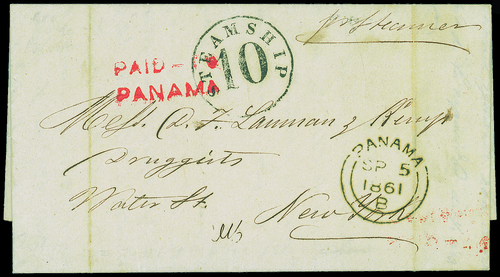 pr Steamer
STEAMSHIP
10
PAID
PANAMA
Messrs. D. T. Lanman & Kemp
Druggists
Water St.
New York
PANAMA
SP 5
1861
B